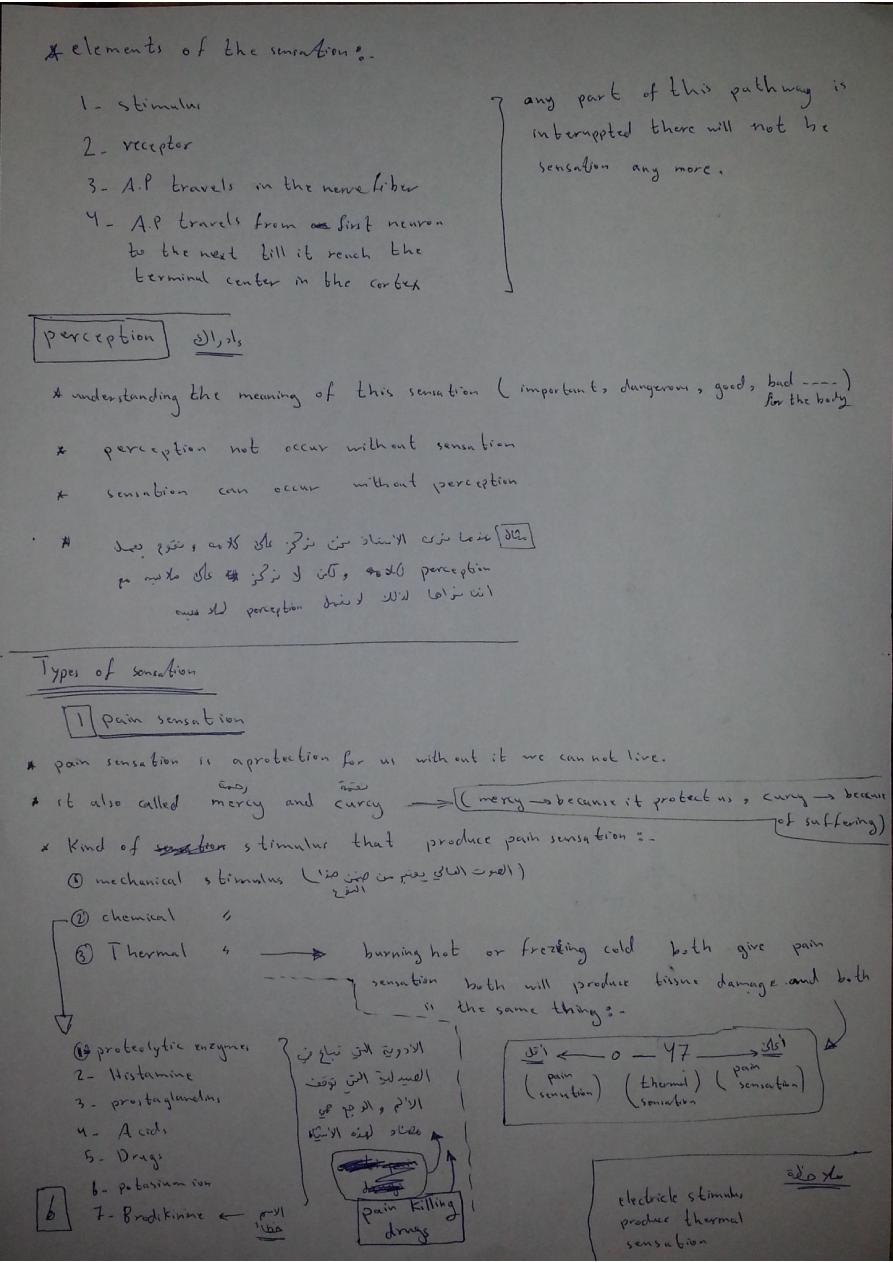 * elements of the sensation :-
1- stimulus
2- receptor
3- A.P travels in the nerve fiber
4- A.P travels from first neuron
to the next till it reach the
terminal center in the cortex
any part of this pathway is
interuppted there will not be
sensation any more.
perception إدراك
* understanding the meaning of this sensation ( important, dangerous, good, bad ----)
for the body
* perception not occur without sensation
* sensation can occur without perception
* مثال عندما نرى الاستاذ نحن نركز على كلامه و نقوم بعمل
perception لكلامه ولكن لا نركز على ملابسه مع
اننا نراها لذلك لا نعمل perception لملابسه
Types of sensation
1 pain sensation
* pain sensation is aprotection for us with out it we can not live.
رحمة نقمة
* it also called mercy and curcy → ( mercy → because it protect us , curcy → because
of suffering)
* Kind of stimulus that produce pain sensation :-
① mechanical stimulus (الصوت العالي يعتبر من ضمن هذا
النوع)
② chemical "
③ Thermal " → burning hot or frezking cold both give pain
sensation both will produce tissue damage and both
is the same thing :-
أقل ← 0 — 47 → أعلى
(pain sensation) (thermal sensation) (pain sensation)
1- proteolytic enzymes
2- Histamine
3- prostaglandins
4- Acids
5- Drugs
6- potasium ion
7- Bradikinine ← الاسم
خطأ
الأدوية التي تباع في
الصيدلية التي توقف
الألم و الوجع هي
مضاد لهذه الأشياء
pain killing
drugs
ملاحظة
electricle stimulus
produce thermal
sensation
6